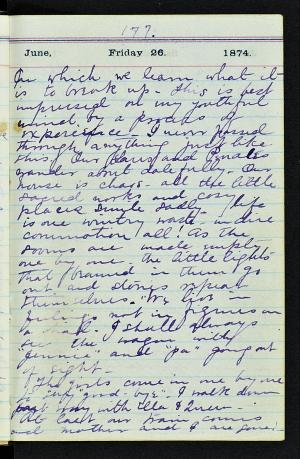 177.
June, Friday 26. 1874.
In which we learn what it
is to break up - This is best
impressed on my youthful
mind by a process of
experience - I never passed
through anything just like
this. Our Lares and Penates
wander about dolefully. Our
house is chaos - all the little
sacred nooks and cosy
places - Life
is one wintry waste
commotion all! As the
rooms are made empty
one by one the little lights
that burned in them go
out and stories repeat
themselves. We live in
feelings not in figures on
a dial. I shall always
see the wagon with
"Jennie" and "pa" going out
of sight -
The girls come in one by one
to say "good-bye". I walk down
part way with Ella & Queen -
At last our train comes
and mother and I are gone!